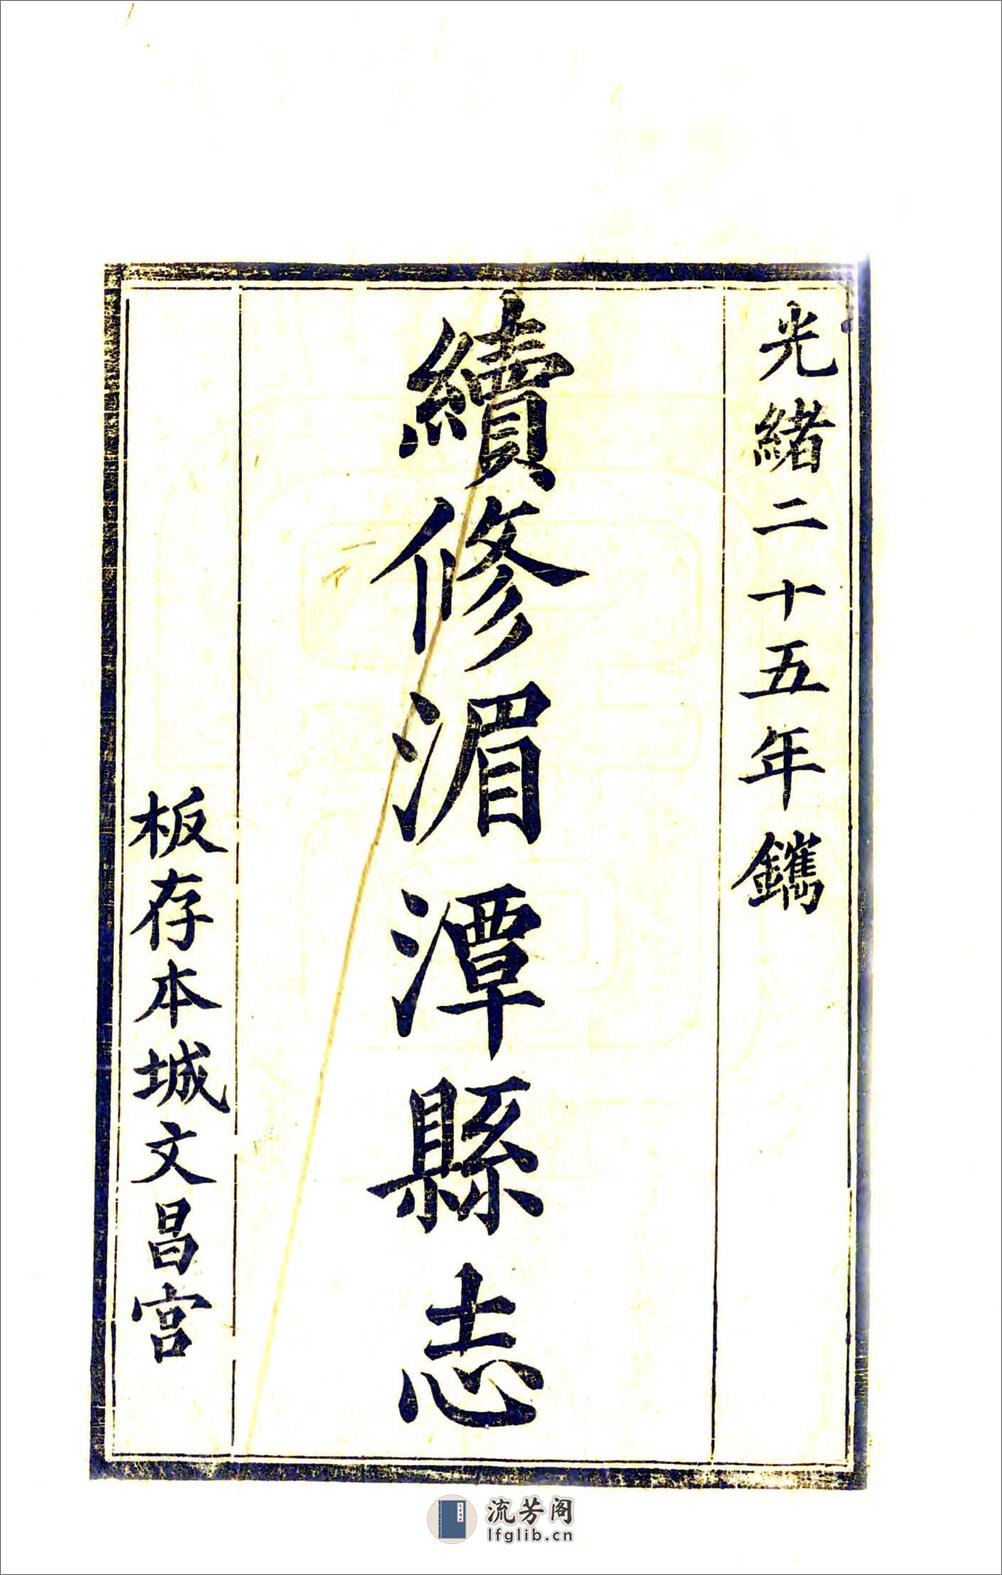 光緒二十五年鐫
續修湄潭縣志
板存本城文昌宮
流芳阁
lfglib.cn